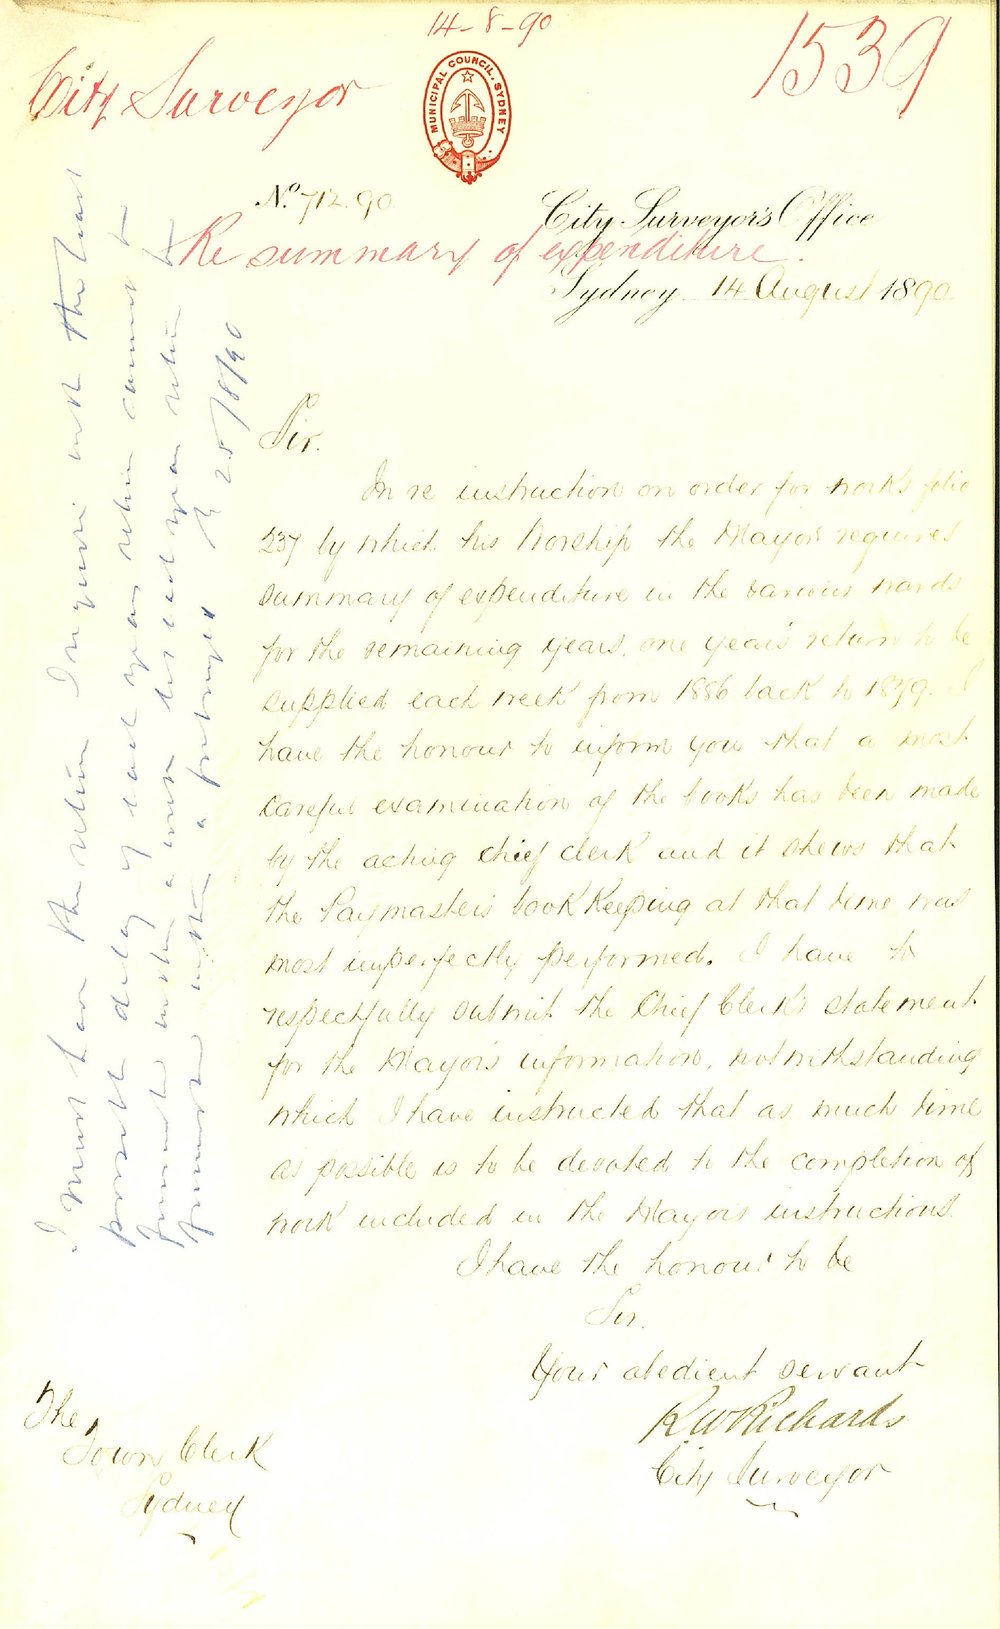 14-8-90
1539
City Surveyor
MUNICIPAL COUNCIL. SYDNEY
No. 712.90
City Surveyor's Office
Re summary of expenditure.
Sydney 14 August 1890
Sir.
In re instruction on order for works folio
237 by which his Worship the Mayor requires
summary of expenditure in the various wards
for the remaining years, one year's return to be
supplied each week from 1886 back to 1879. I
have the honour to inform you that a most
careful examination of the books has been made
by the acting chief clerk and it shews that
the Paymaster's book keeping at that time was
most imperfectly performed. I have to
respectfully submit the Chief Clerk's statement
for the Mayor's information, notwithstanding
which I have instructed that as much time
as possible is to be devoted to the completion of
work included in the Mayor's instructions.
I have the honour to be
Sir.
Your obedient servant
R W Richards
City Surveyor
The
Town Clerk
Sydney
I must have the return I require with the least
possible delay if each years return cannot be
furnished within a week let each years return be
furnished within a fortnight
25/8/90